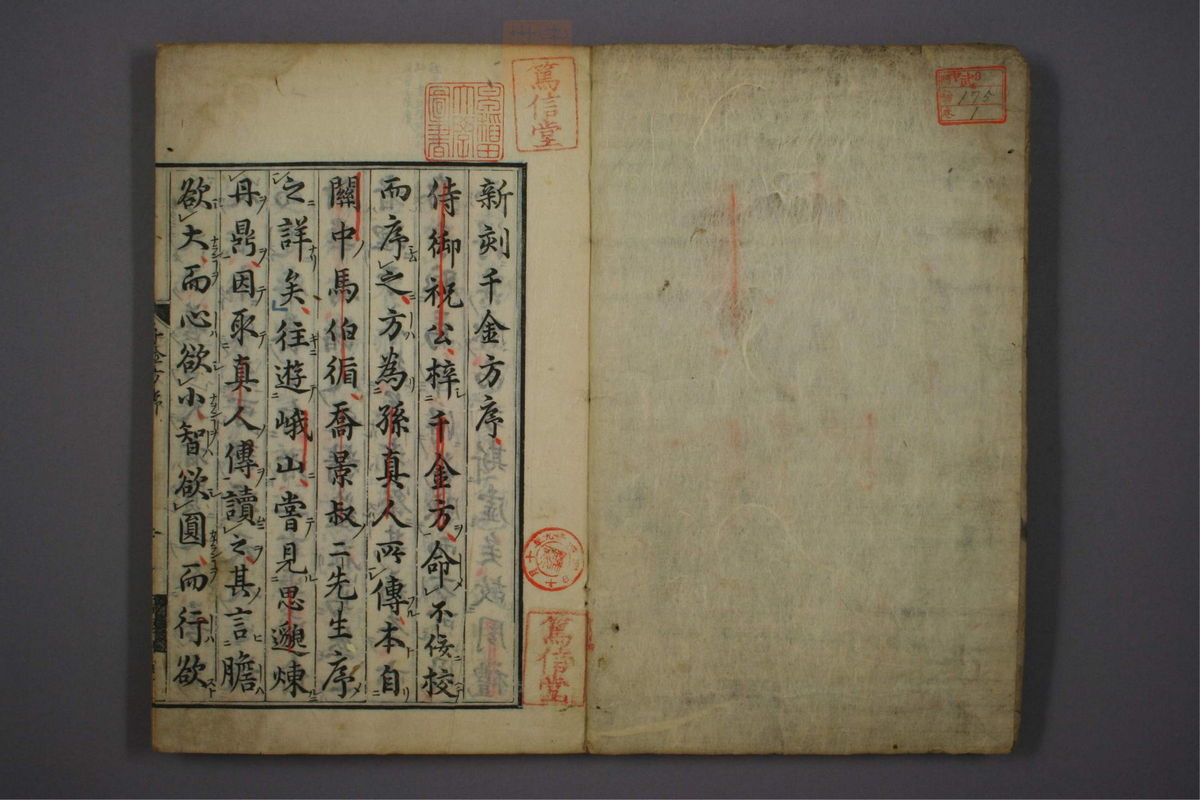 新刻千金方序
侍御祝公梓千金方命不佞校
而序之方為孫真人所傳本自
關中馬伯循喬景叔二先生序
之詳矣往遊峨山嘗見思邈煉
丹鼎因取真人傳讀之其言膽
欲大而心欲小智欲圓而行欲
篤信堂
篤信堂
175
1